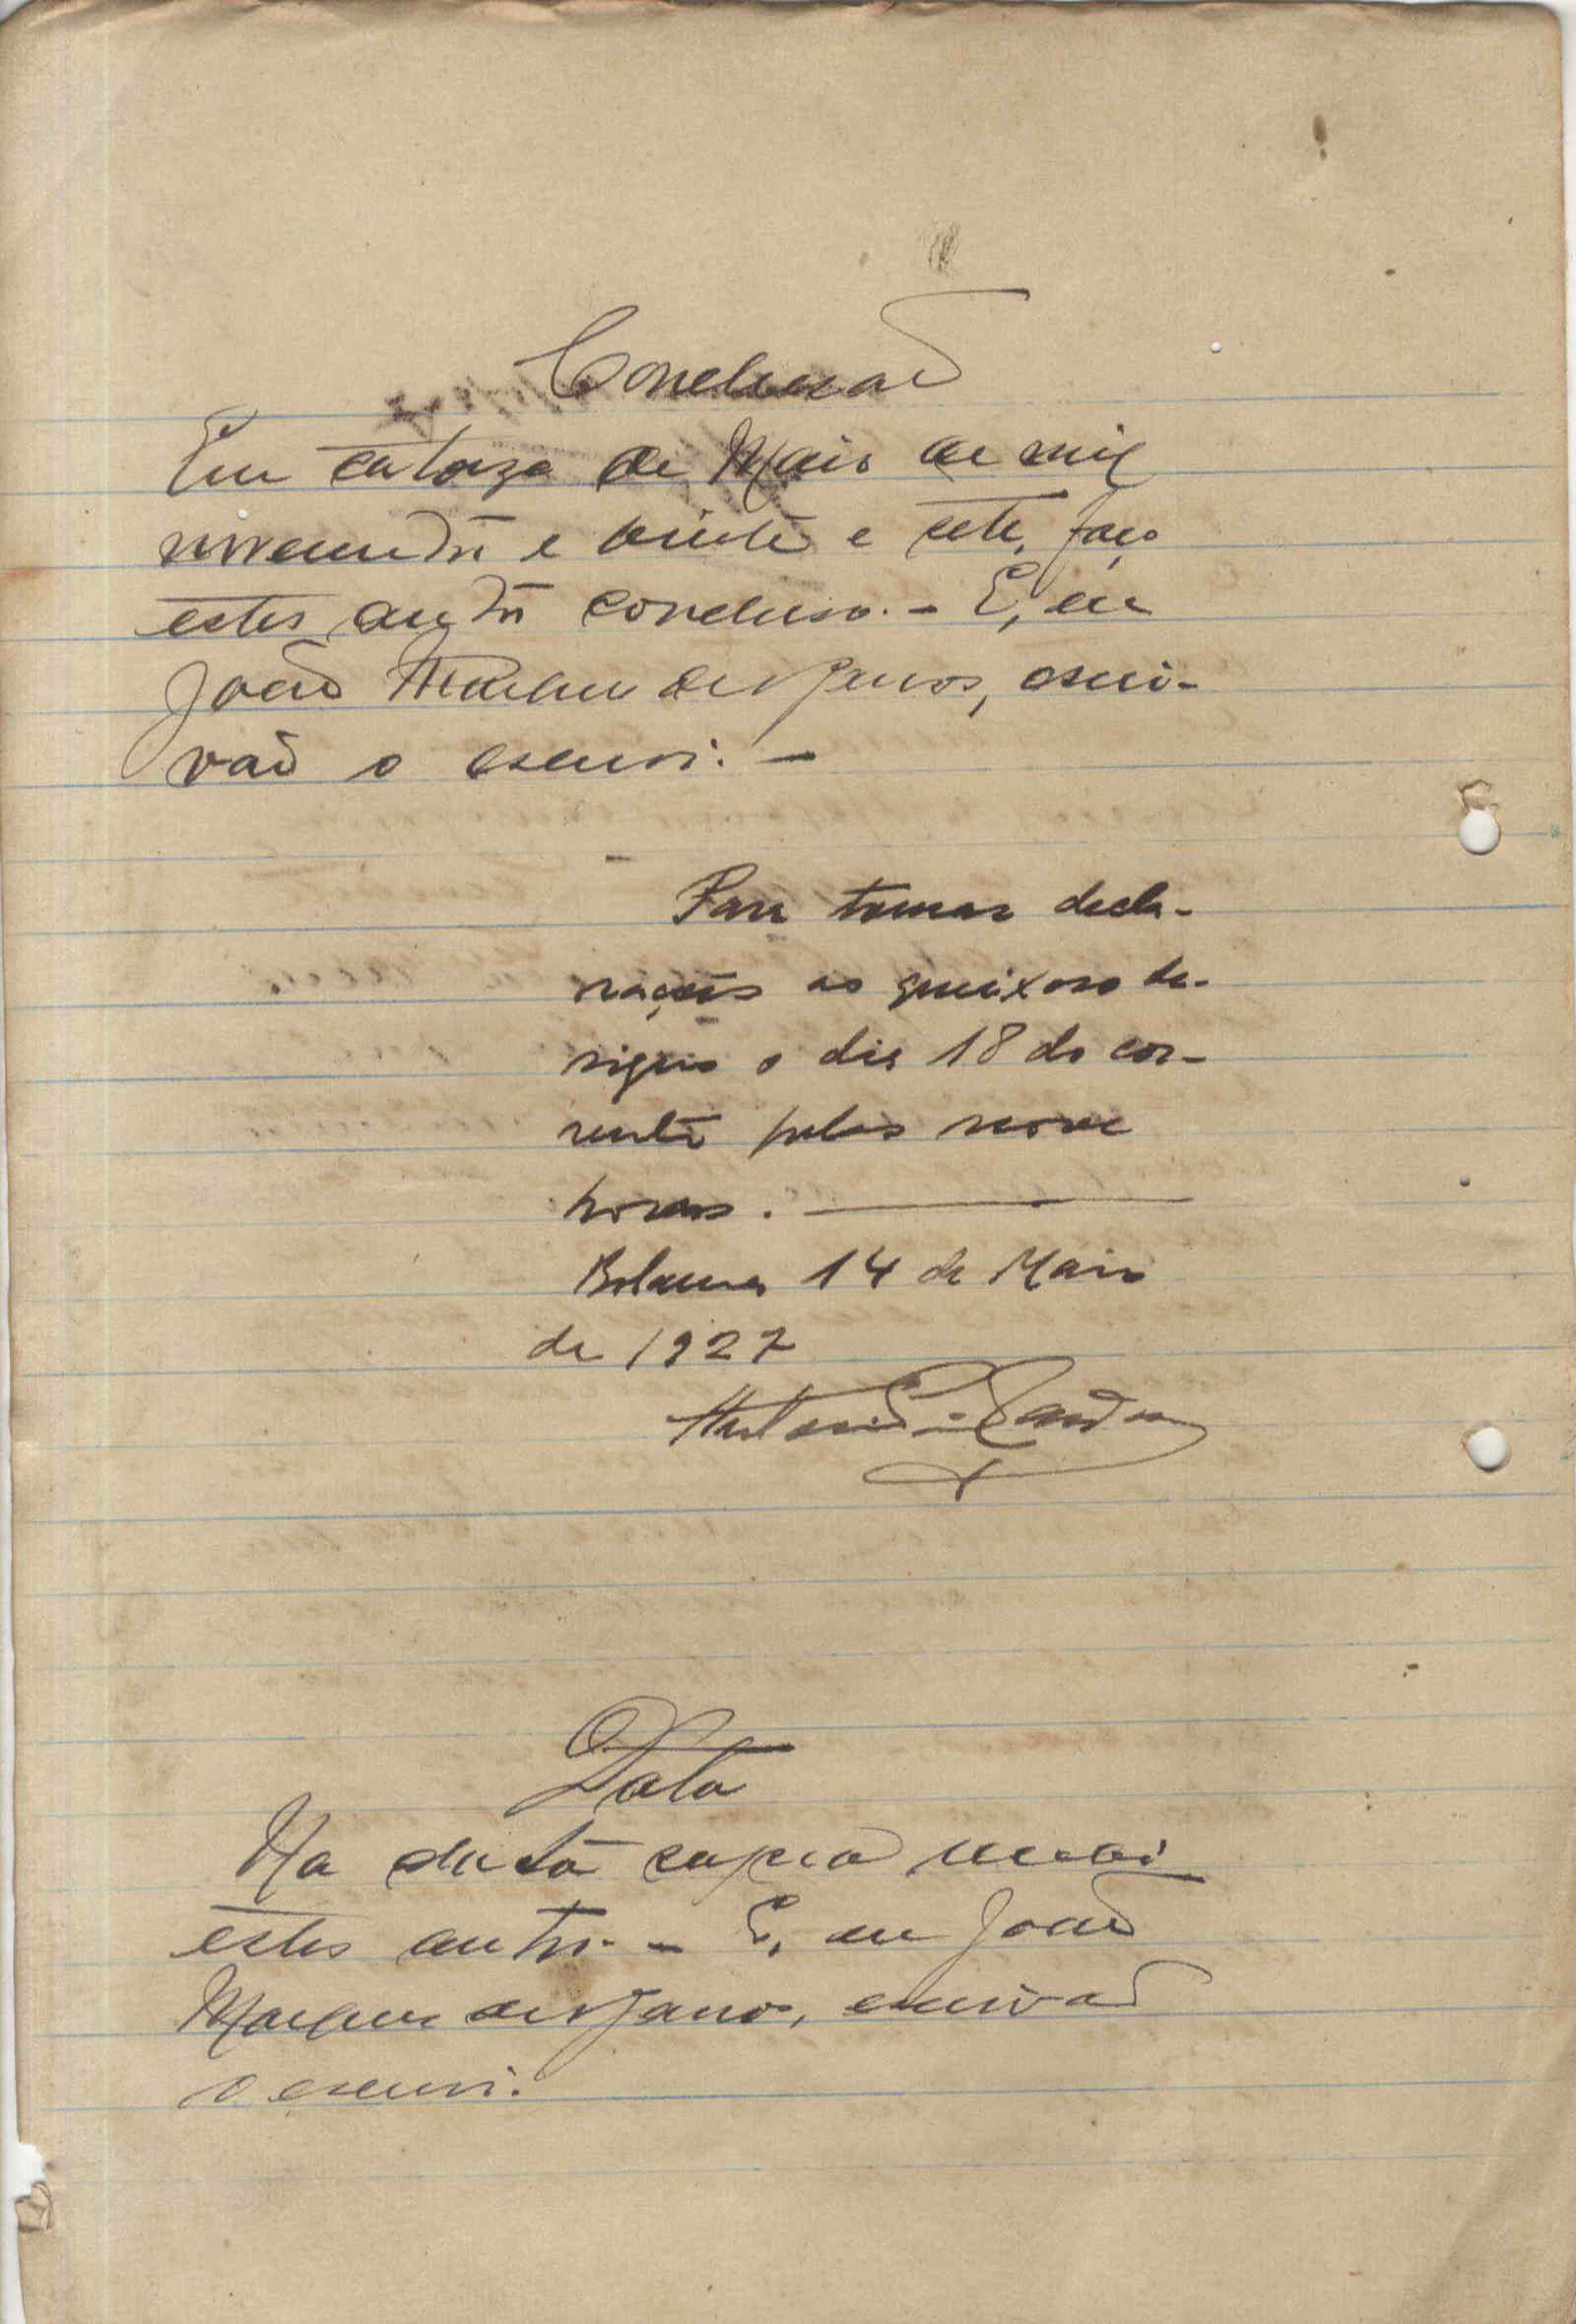 Conclusão
Em catorze de Maio de mil
novecentos e vinte e sete, faço
estes autos conclusos. - E, eu
João Marques de Barros, escri-
vão o escrevi. -
Para tomar decla-
rações ao queixoso de-
signo o dia 18 do cor-
rente pelas nove
horas.
Bolama 14 de Maio
de 1927
Data
Na data supra recebi
estes autos. - E, eu João
Marques de Barros, escrivão
o escrevi.